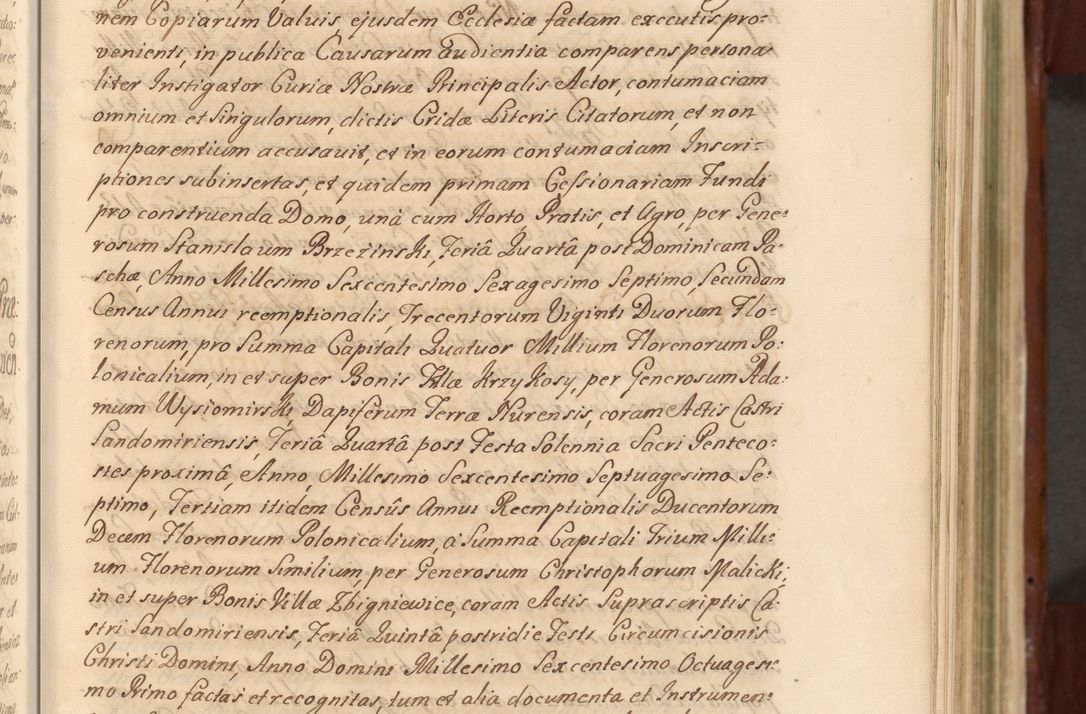 nem Copiarum Valuis ejusdem Ecclesiæ factam executis pro=
venienti, in publica Causarum Audientia comparens persona=
liter Instigator Curiæ Nostræ Principalis Actor, contumaciam
omnium et Singulorum, dictis Cridæ Literis Citatorum, et non
comparentium accusauit, et in eorum contumaciam Inscri=
ptiones subinsertas, et quidem primam Cessionariam Fundi
pro construenda Domo, unà cum Horto, Pratis, et Agro, per Gene=
rosum Stanislaum Brzezinski, Feriâ Quartâ post Dominicam Pa=
schæ, Anno Millesimo Sexcentesimo Sexagesimo Septimo, Secundam
Census Annui reemptionalis, Trecentorum Viginti Duorum Flo=
renorum, pro Summa Capitali Quatuor Millium Florenorum Po=
lonicalium, in et super Bonis Villæ Krzykosy, per Generosum Ada=
mum Wysiomirski, Dapiferum Terræ Nurensis, coram Actis Castri
Sandomiriensis, Feriâ Quartâ post Festa Solennia Sacri Penteco=
stes proximâ, Anno, Millesimo Sexcentesimo Septuagesimo Se=
ptimo, Tertiam itidem Censûs Annui Reemptionalis Ducentorum
Decem Florenorum Polonicalium, à Summa Capitali Trium Milli=
um Florenorum Similium, per Generosum Christophorum Malicki,
in et super Bonis Villæ Zbigniewice, coram Actis Suprascriptis Ca=
stri Sandomiriensis, Feriâ Quintâ postridie Festi Circumcisionis
Christi Domini, Anno Domini Millesimo Sexcentesimo Octuagesi=
mo Primo factas et recognitas, tum et alia documenta et Instrumen=